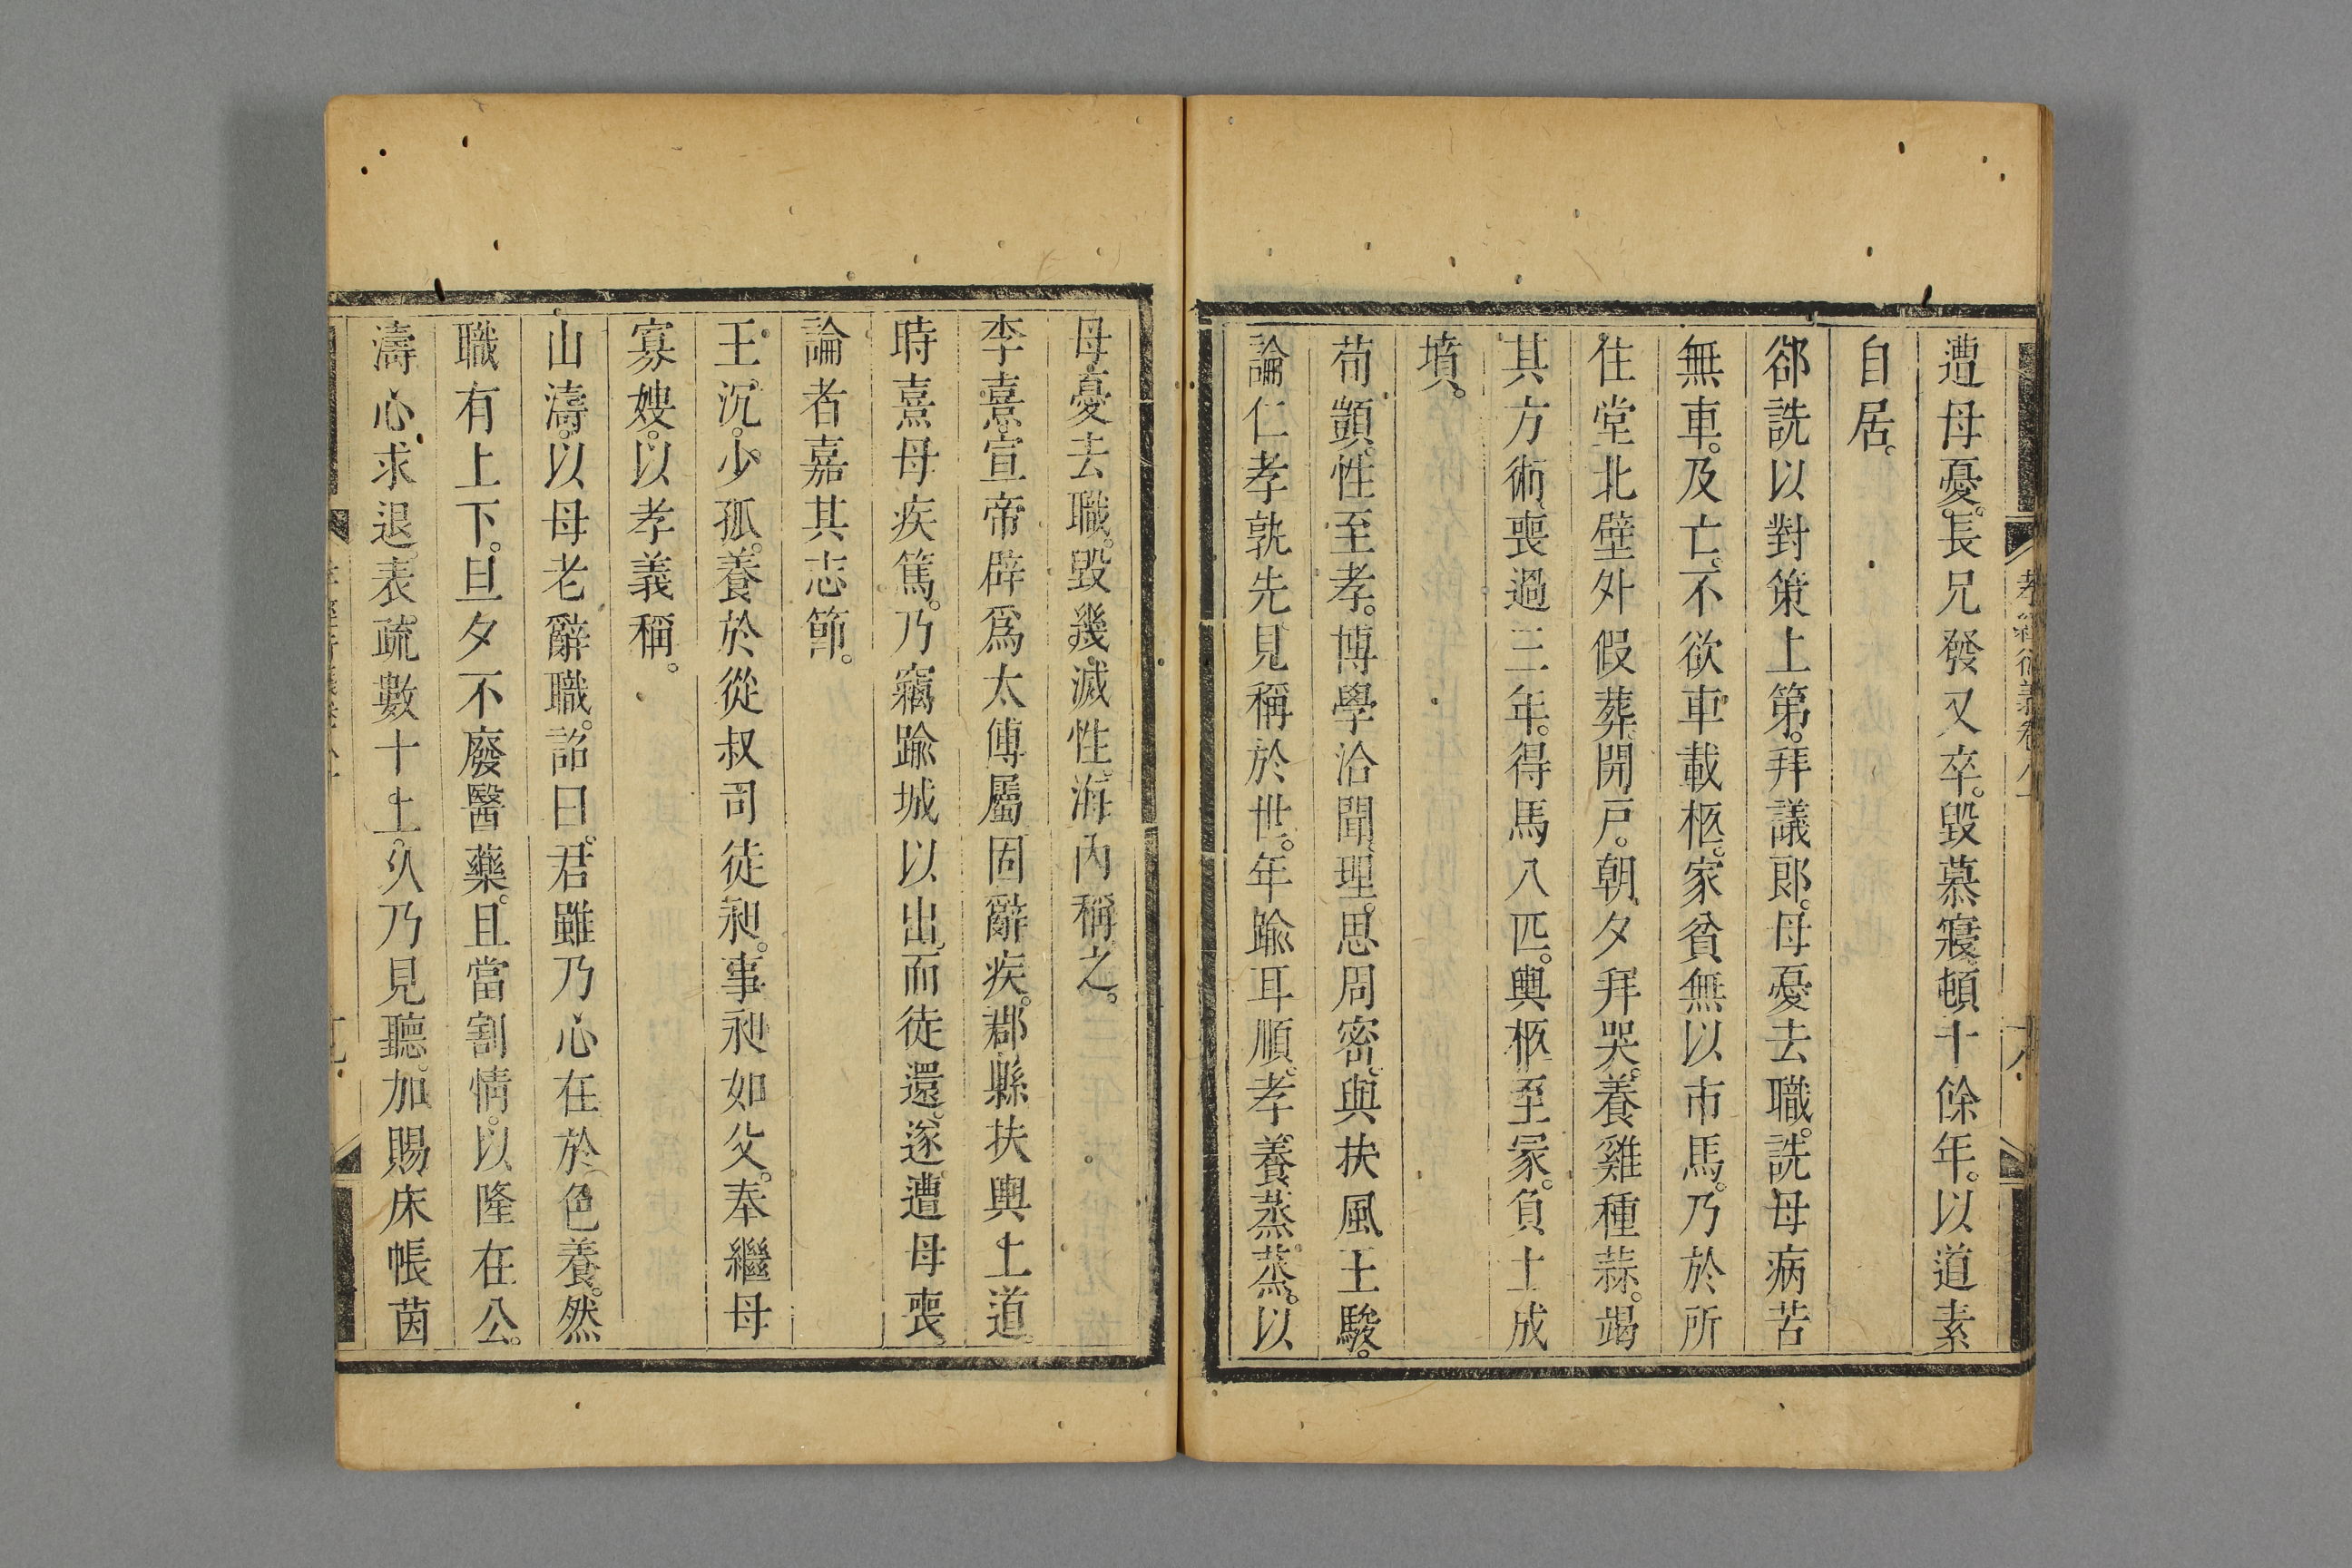 遭母憂。長兄發又卒。毀慕寢頓十餘年。以道素
自居。
郤詵以對策上第。拜議郎。母憂去職。詵母病苦
無車。及亡。不欲車載柩。家貧無以市馬。乃於所
住堂北壁外假葬。開戸。朝夕拜哭。養雞種蒜。竭
其方術。喪過三年。得馬八匹。輿柩至冢。負土成
墳。
荀顗。性至孝。博學洽聞。理思周密。與扶風王駿。
論仁孝孰先見稱於世。年踰耳順。孝養蒸蒸。以
母憂去職。毀幾滅性。海內稱之。
李憙。宣帝辟爲太傅屬固辭疾。郡縣扶輿上道。
時憙母疾篤。乃竊踰城以出。而徒還。遂遭母喪。
論者嘉其志節。
王沉。少孤。養於從叔司徒昶。事昶如父。奉繼母
寡嫂。以孝義稱。
山濤。以母老辭職。詔曰。君雖乃心在於色養。然
職有上下。旦夕不廢醫藥。且當割情。以隆在公。
濤心求退。表疏數十上。久乃見聽。加賜床帳茵